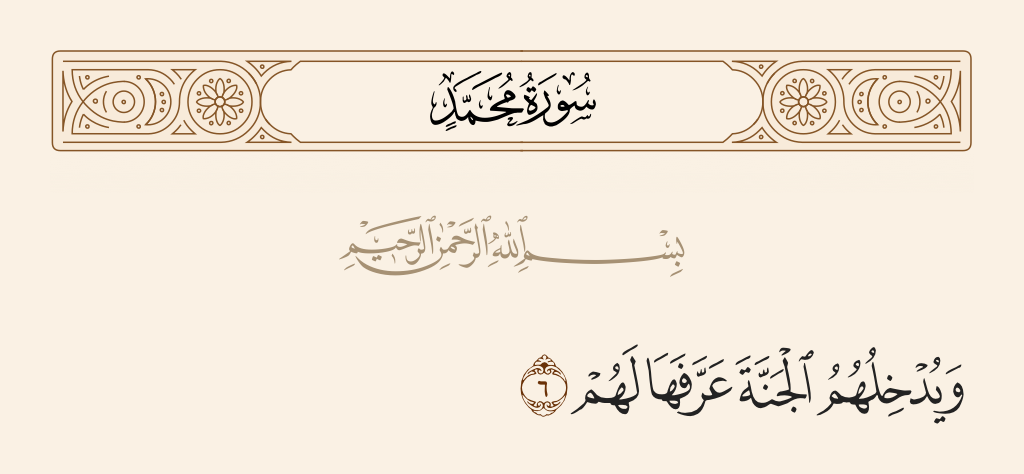 سُورَةُ مُحَمَّدٍ
بِسْمِ ٱللَّهِ ٱلرَّحْمَٰنِ ٱلرَّحِيمِ
وَيُدْخِلُهُمُ ٱلْجَنَّةَ عَرَّفَهَا لَهُمْ ٦